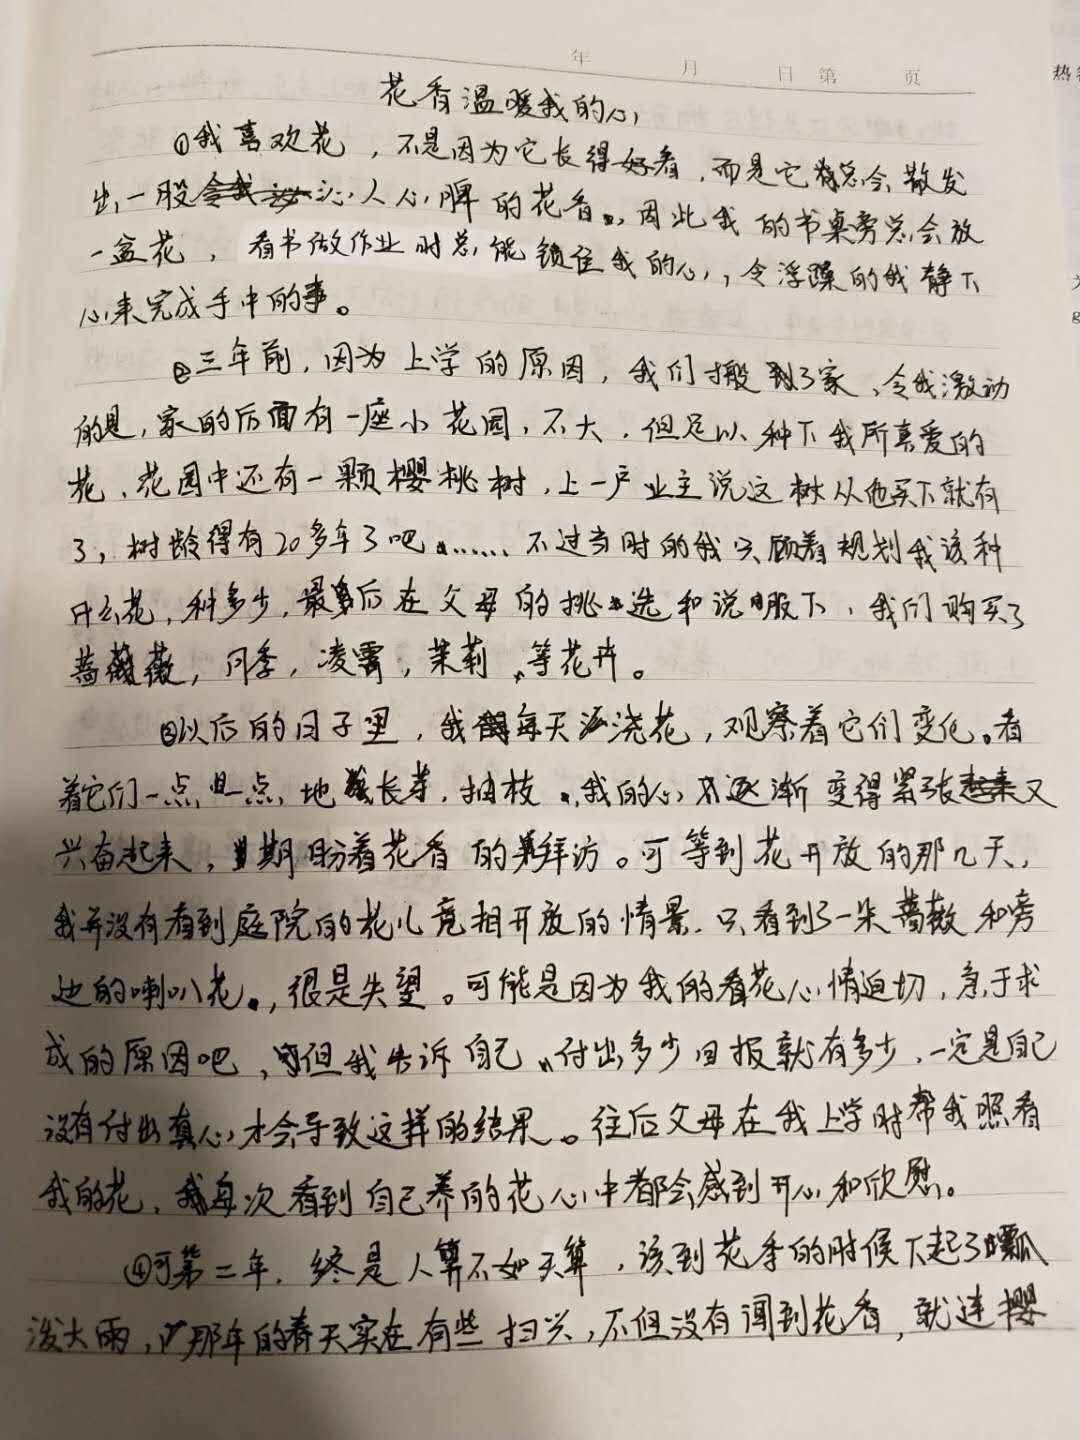 年 月 日 第 页
花香温暖我的心
①我喜欢花，不是因为它长得好看，而是它总会散发
出一股沁人心脾的花香。因此我的书桌旁总会放
一盆花，看书做作业时总能锁住我的心，令浮躁的我静下
心来完成手中的事。
②三年前，因为上学的原因，我们搬到了家，令我激动
的是，家的后面有一座小花园，不大，但足以种下我所喜爱的
花，花园中还有一颗樱桃树，上一户业主说这树从他买下就有
了，树龄得有20多年了吧……不过当时的我只顾着规划我该种
什么花，种多少，最后在父母的挑选和说服下，我们购买了
蔷薇，月季，凌霄，茉莉，等花卉。
③以后的日子里，我每天浇花，观察着它们变化。看
着它们一点一点地长芽，抽枝，我的心逐渐变得紧张又
兴奋起来，期盼着花香的拜访。可等到花开放的那几天，
我并没有看到庭院的花儿竞相开放的情景，只看到了一朵蔷薇和旁
边的喇叭花，很是失望。可能是因为我的看花心情迫切，急于求
成的原因吧，但我告诉自己，付出多少回报就有多少，一定是自己
没有付出真心才会导致这样的结果。往后父母在我上学时帮我照看
我的花，我每次看到自己养的花心中都会感到开心和欣慰。
④可第二年，终是人算不如天算，该到花季的时候下起了瓢
泼大雨，那年的春天实在有些扫兴，不但没有闻到花香，就连樱
热